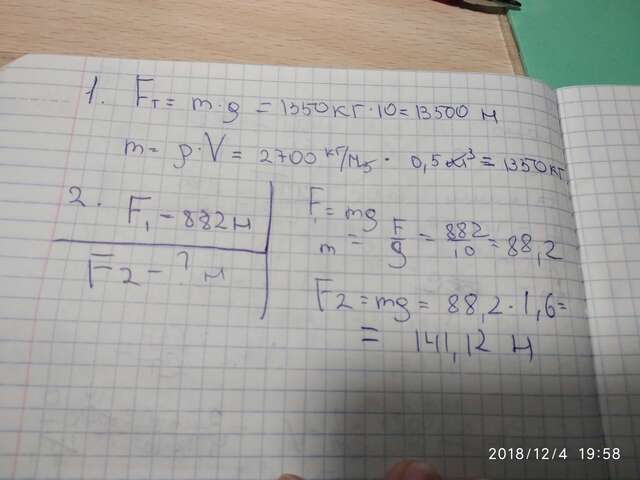 1. Fт = m·g = 1350кг·10 = 13500 н
m = ρ·V = 2700 кг/м3 · 0,5 м³ = 1350кг.
2. F₁ – 882 н
F2 – ? н
F₁ = mg
m = F/g = 882/10 = 88,2
F2 = mg = 88,2·1,6 =
= 141,12 н
2018/12/4 19:58